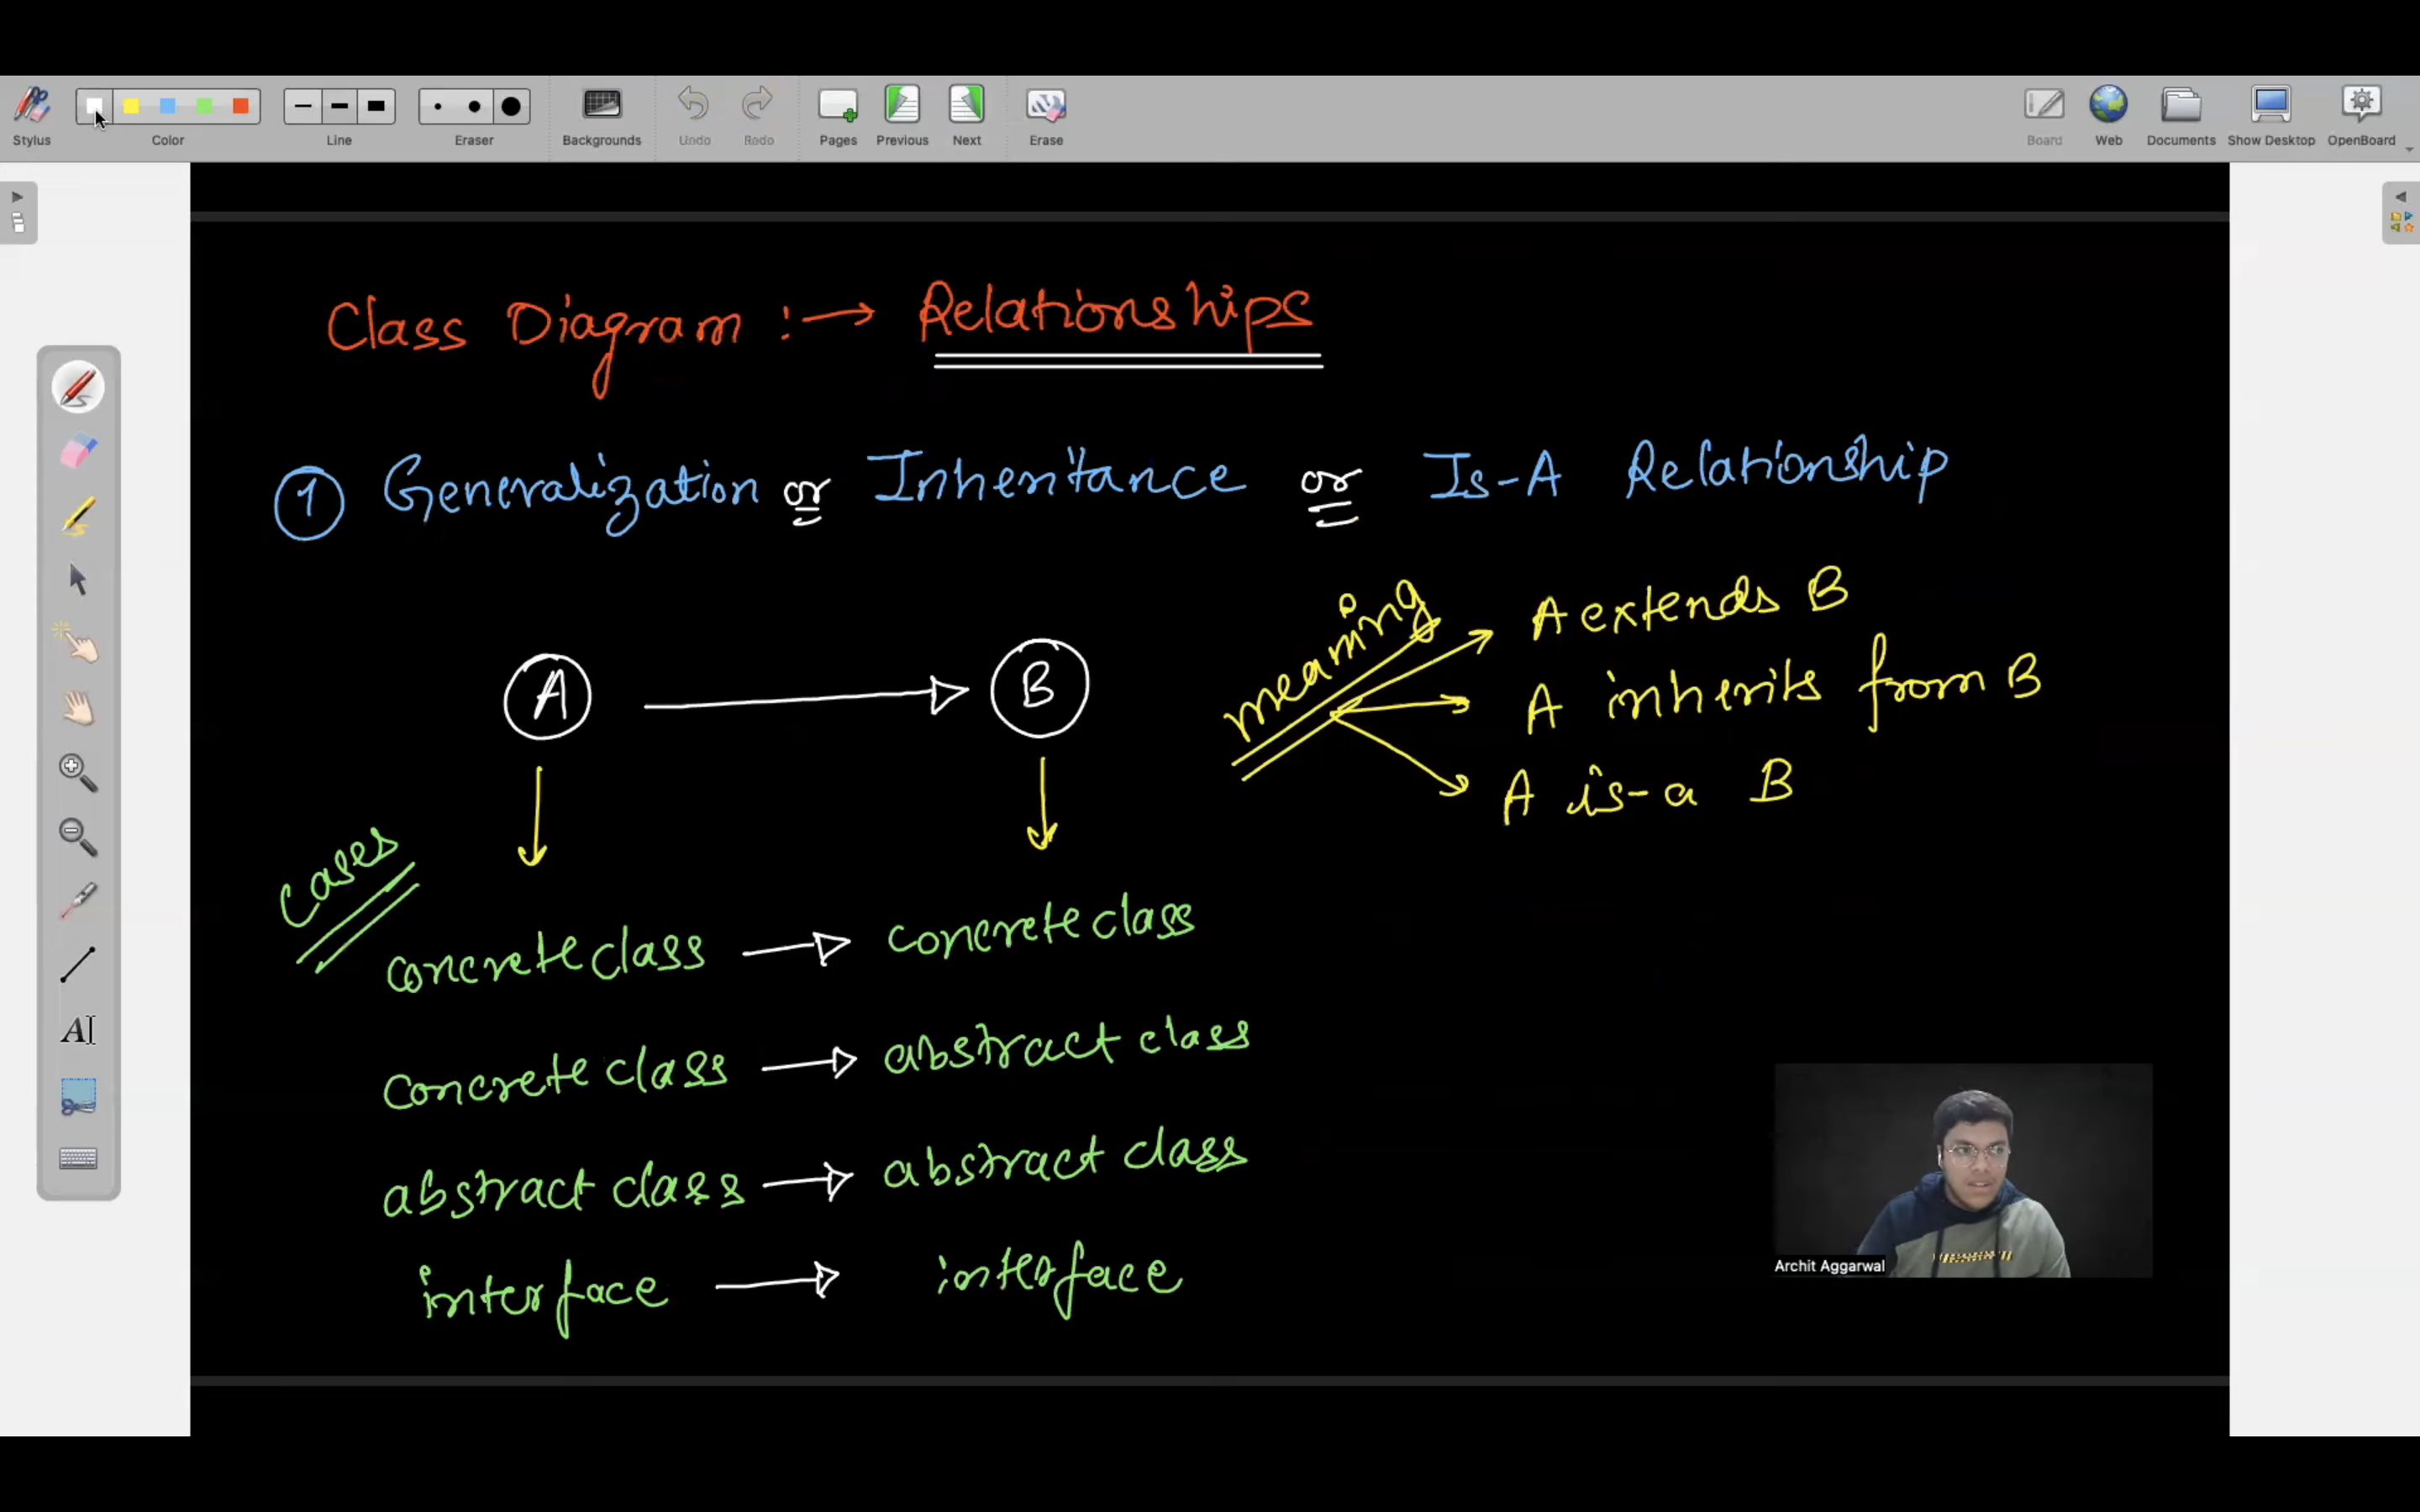 Stylus Color Line Eraser Backgrounds Undo Redo Pages Previous Next Erase Board Web Documents Show Desktop OpenBoard
Class Diagram :→ Relationships
① Generalization or Inheritance or Is-A Relationship
A → B
meaning
A extends B
A inherits from B
A is-a B
cases
concrete class → concrete class
concrete class → abstract class
abstract class → abstract class
interface → interface
Archit Aggarwal